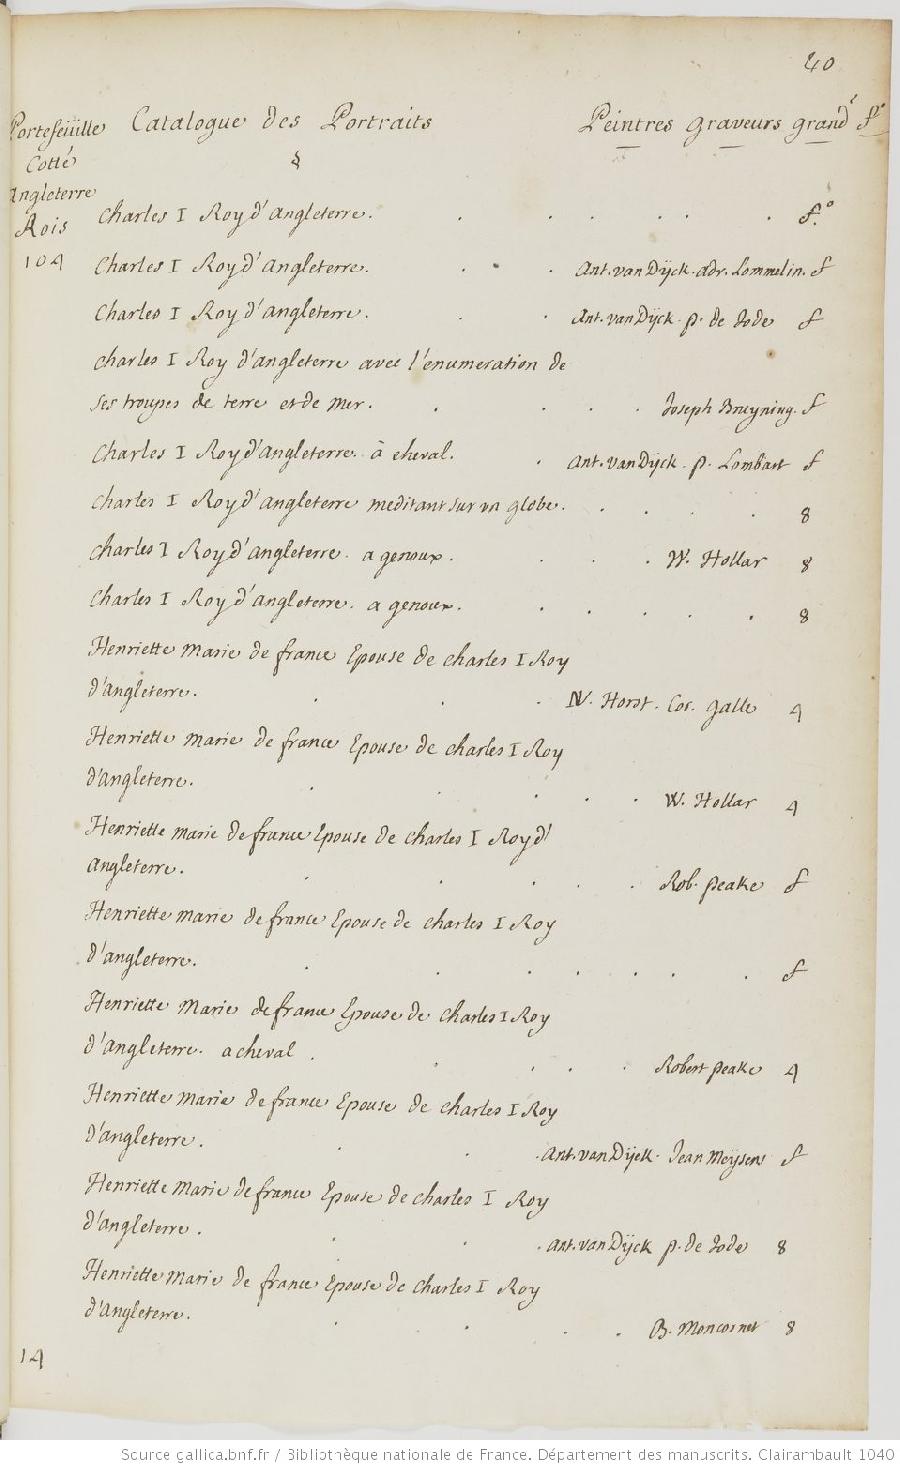 40
Portefeüille Catalogue des Portraits Peintres graveurs grand.r f.o
Cotté
Angleterre
Rois
104
Charles I Roy d'Angleterre. f.o
Charles I Roy d'Angleterre. Ant. van Dÿck. adr. Lommelin. f
Charles I Roy d'Angleterre. Ant. van Dÿck. p. de Jode f
Charles I Roy d'Angleterre avec l'enumeration de
ses troupes de terre et de mer. Joseph Bruyning. f
Charles I Roy d'Angleterre. à cheval. Ant. van Dÿck. p. Lombart f
Charles I Roy d'Angleterre meditant sur un globe. 8
Charles I Roy d'Angleterre. a genoux. W. Hollar 8
Charles I Roy d'Angleterre. a genoux. 8
Henriette Marie de france Epouse de Charles I Roy
d'Angleterre. N. Horst. Cor. galle 4
Henriette Marie de france Epouse de Charles I Roy
d'Angleterre. W. Hollar 4
Henriette Marie de france Epouse de Charles I Roy d'
Angleterre. Rob. peake f
Henriette Marie de france Epouse de Charles I Roy
d'Angleterre. f
Henriette Marie de france Epouse de Charles I Roy
d'Angleterre. a cheval. Robert peake 4
Henriette Marie de france Epouse de Charles I Roy
d'Angleterre. Ant. van Dÿck. Jean Meÿsens f
Henriette Marie de france Epouse de Charles I Roy
d'Angleterre. Ant. van Dÿck p. de Jode 8
Henriette Marie de france Epouse de Charles I Roy
d'Angleterre. B. Moncornet 8
14
Source gallica.bnf.fr / Bibliothèque nationale de France. Département des manuscrits. Clairambault 1040